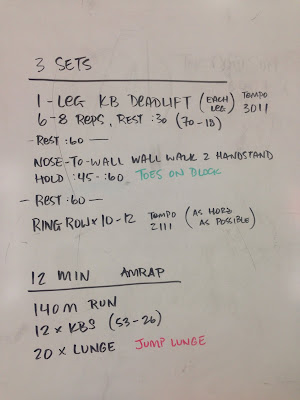 3 SETS
1-LEG KB DEADLIFT (EACH LEG) TEMPO 3011
6-8 REPS, REST :30 (70-18)
- REST :60 —
NOSE-TO-WALL WALL WALK 2 HANDSTAND
HOLD :45-:60 TOES ON BLOCK
- REST :60 —
RING ROW x 10-12 TEMPO 2111 (AS HORZ AS POSSIBLE)
12 MIN AMRAP
140M RUN
12 x KBS (53-26)
20 x LUNGE JUMP LUNGE